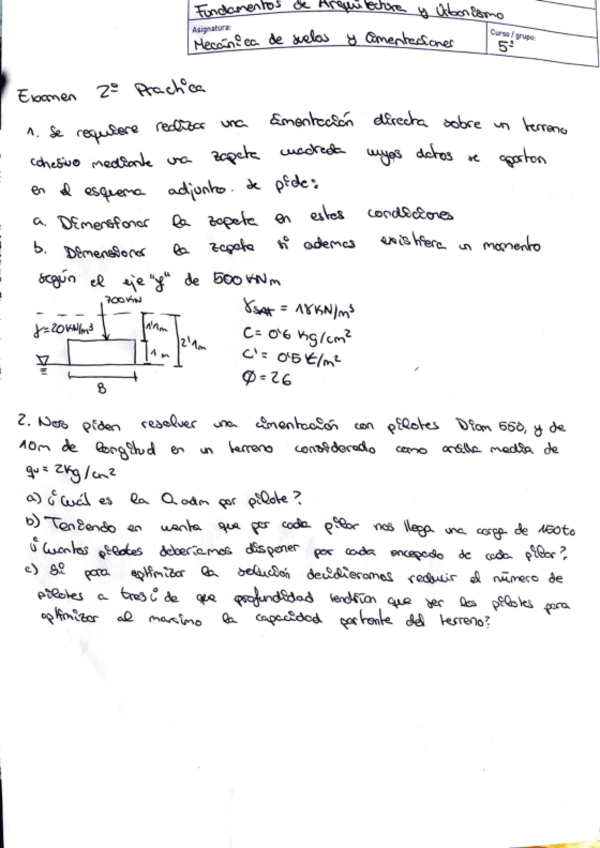 Fundamentos de Arquitectura y Urbanismo
Asignatura:
Mecánica de suelos y Cimentaciones
Curso / grupo:
5º
Examen 2º Practica
1. Se requiere realizar una cimentación directa sobre un terreno
cohesivo mediante una zapata cuadrada cuyos datos se aportan
en el esquema adjunto. Se pide:
a. Dimensionar la zapata en estas condiciones
b. Dimensionar la zapata si ademas existiera un momento
según el eje "y" de 500 KNm
700KN
γ=20KN/m³
1'1m
1 m
2'1m
B
γsat = 18KN/m³
C= 0'6 Kg/cm²
C'= 0'5 t/m²
Ø=26
2. Nos piden resolver una cimentación con pilotes Diam 550, y de
10m de longitud en un terreno considerado como arcilla media de
qu= 2Kg/cm²
a) ¿Cuál es la Q adm por pilote?
b) Teniendo en cuenta que por cada pilar nos llega una carga de 150to
¿Cuantos pilotes deberiamos disponer por cada encepado de cada pilar?
c) Si para optimizar la solución decidieramos reducir el número de
pilotes a tres ¿de que profundidad tendrían que ser los pilotes para
optimizar al maximo la capacidad portante del terreno?